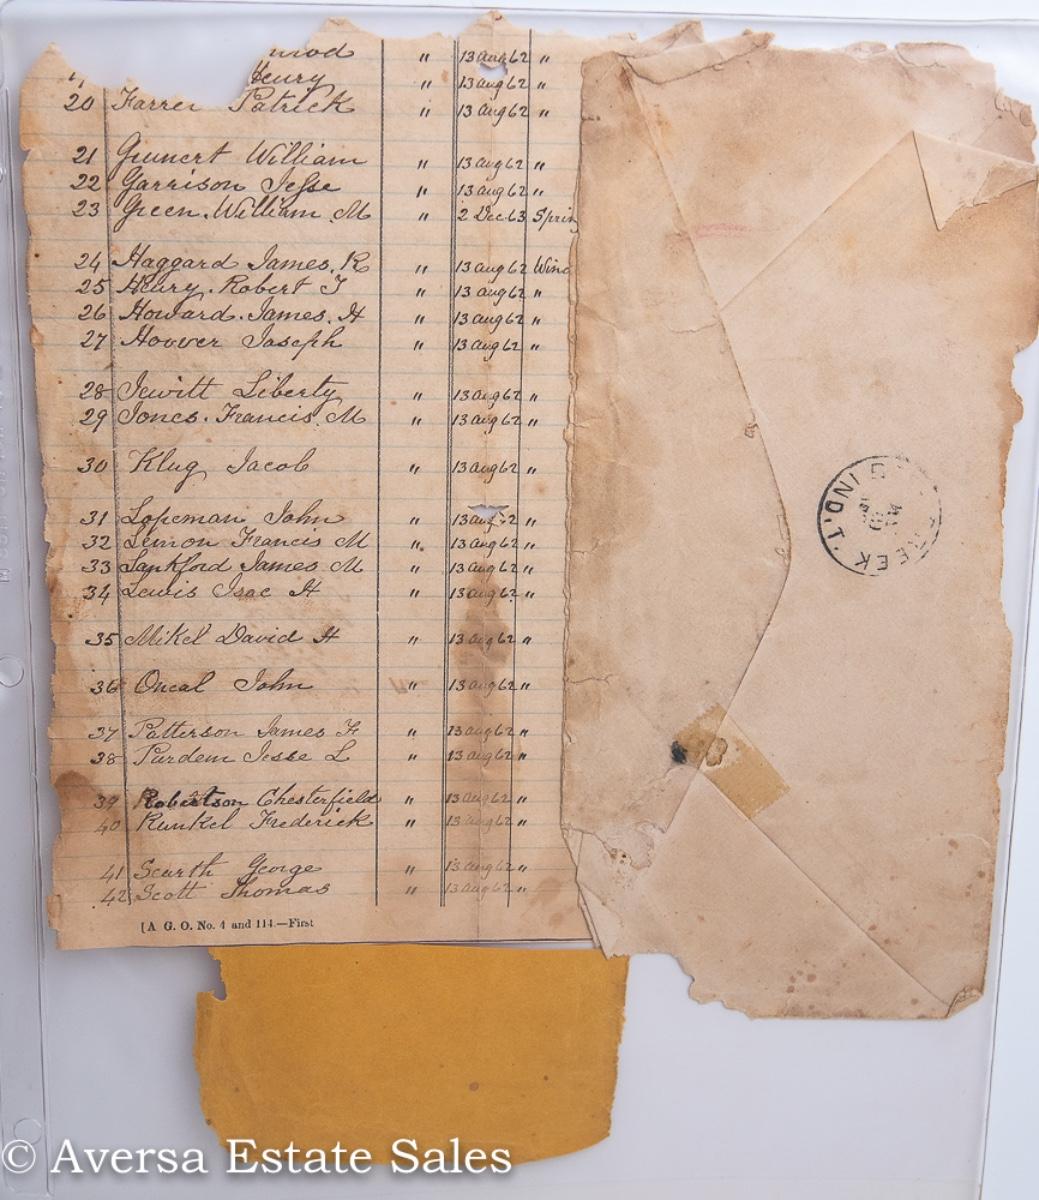 mod " 13 Aug 62 "
Henry " 13 Aug 62 "
20 Farrer Patrick " 13 Aug 62 "
21 Gunert William " 13 Aug 62 "
22 Garrison Jesse " 13 Aug 62 "
23 Green. William. M " 2 Dec. 63 Sprin
24 Haggard James. R " 13 Aug 62 Wind
25 Henry. Robert J " 13 Aug 62 "
26 Howard. James. H " 13 Aug 62 "
27 Hoover Joseph " 13 Aug 62 "
28 Jewitt Liberty " 13 Aug 62 "
29 Jones. Francis. M " 13 Aug 62 "
30 Klug Jacob " 13 Aug 62 "
31 Lopeman John " 13 Aug 62 "
32 Lemon Francis M " 13 Aug 62 "
33 Lankford James M " 13 Aug 62 "
34 Lewis Isac H " 13 Aug 62 "
35 Mikel David H " 13 Aug 62 "
36 Oneal John " 13 Aug 62 "
37 Patterson James F " 13 Aug 62 "
38 Purdem Jesse L " 13 Aug 62 "
39 Robertson Chesterfield " 13 Aug 62 "
40 Runkel Frederick " 13 Aug 62 "
41 Scarth George " 13 Aug 62 "
42 Scott Thomas " 13 Aug 62 "
[A. G. O. No. 4 and 114.—First
REEK IND'T.
© Aversa Estate Sales